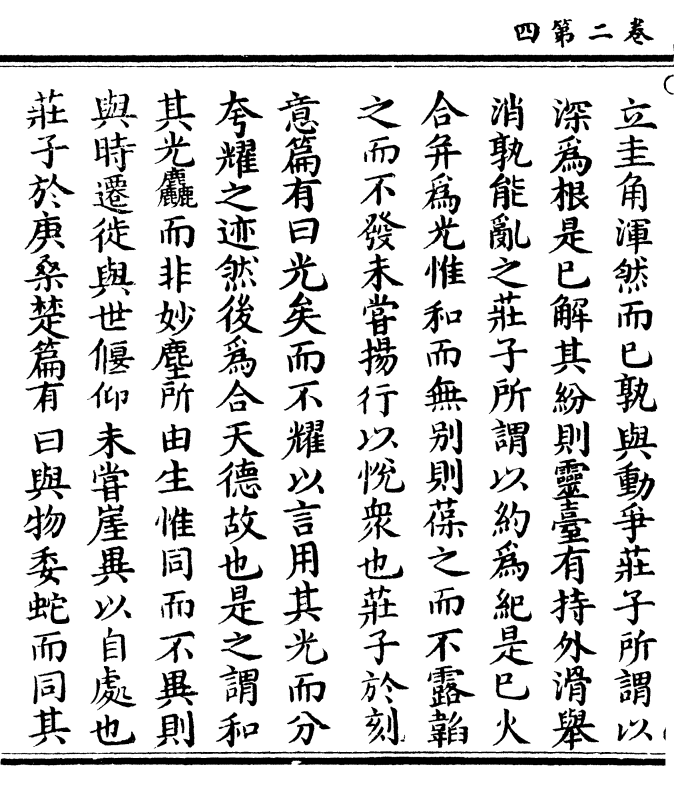 卷二第四
立圭角渾然而已孰與動爭莊子所謂以
深爲根是已解其紛則靈臺有持外滑舉
消孰能亂之莊子所謂以約爲紀是已火
合弁爲光惟和而無別則葆之而不露韜
之而不發未嘗揚行以悅衆也莊子於刻
意篇有曰光矣而不耀以言用其光而分
夸耀之迹然後爲合天德故也是之謂和
其光麤而非妙塵所由生惟同而不異則
與時遷徙與世偃仰未嘗崖異以自處也
莊子於庚桑楚篇有曰與物委蛇而同其